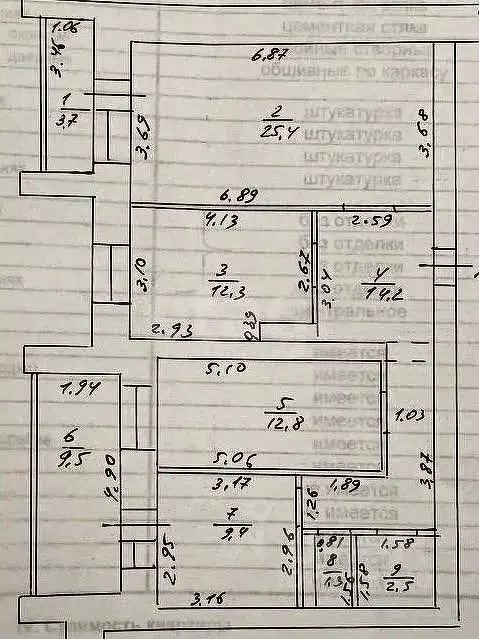 1.06
3.46
1
3.7
6.87
3.69
2
25,4
3,68
6.89
4.13
2.59
3.10
3
12,3
2.62
3.04
4
14.2
2.93
0,39
5.10
5
12,8
1.03
5.06
1.94
6
9,5
4.90
3.17
1.89
1.26
3,87
7
9,4
2.95
2.96
3.16
0,81
8
1.3
1.58
1.58
9
2,5
цементная стяжка
обшивные по каркасу
штукатурка
штукатурка
штукатурка
штукатурка
без отделки
без отделки
отделки
имеется
имеется
имеется
имеется
имеется
имеется
имеется
имеется
IV. Стоимость квартиры